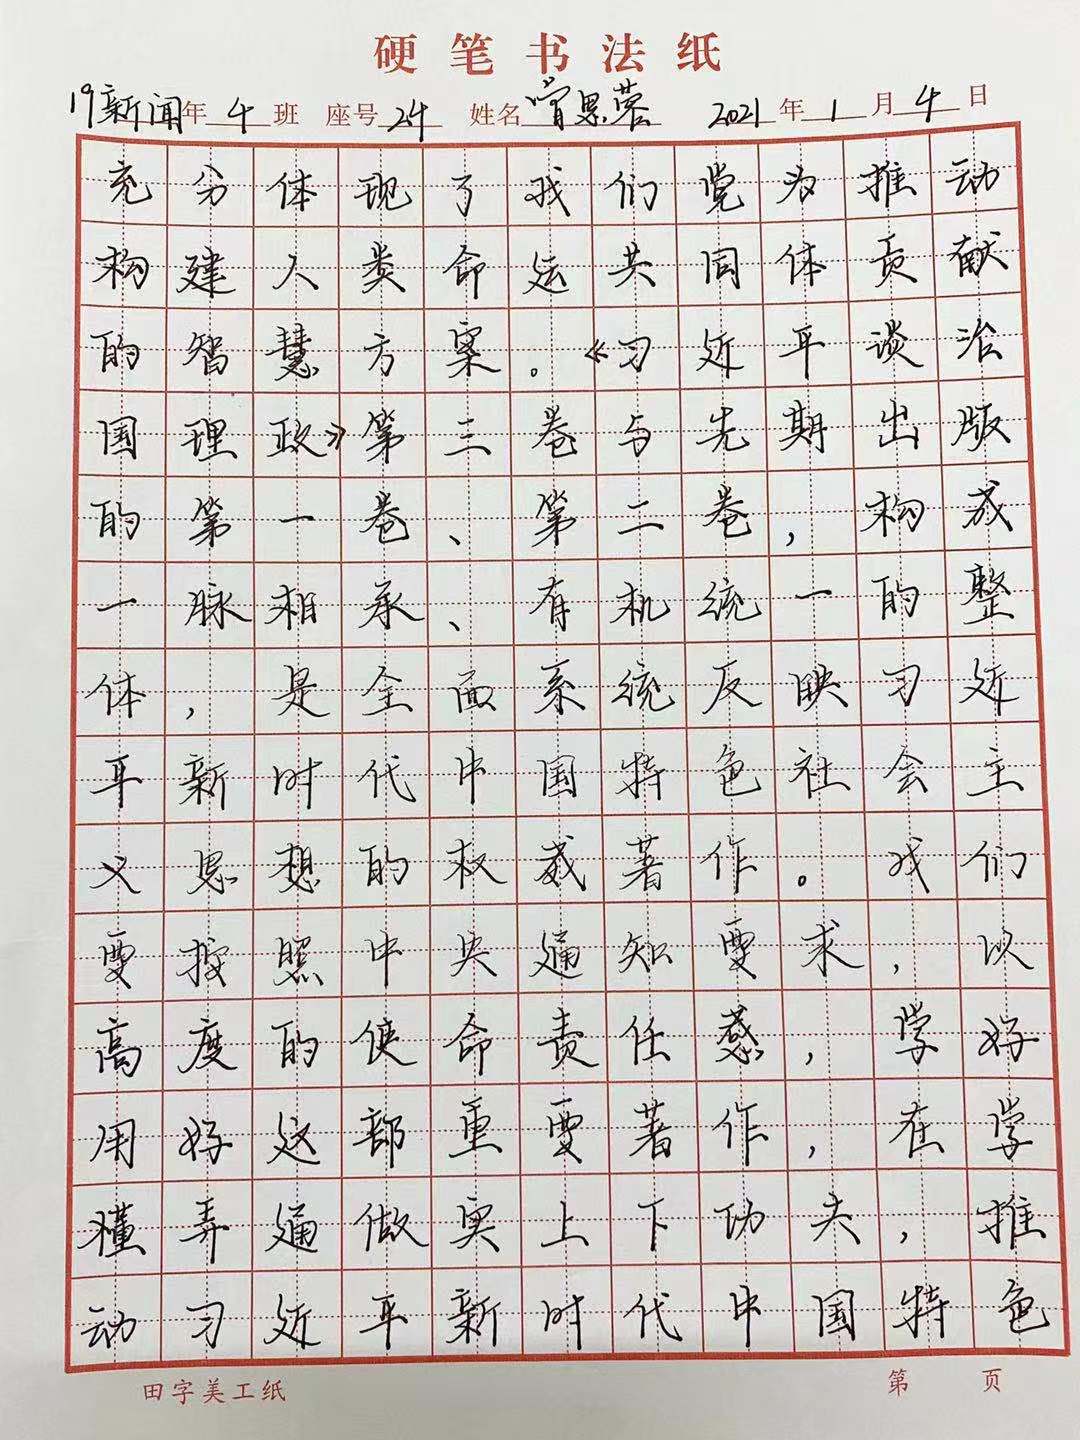 硬笔书法纸
19新闻年4班 座号24 姓名 思蓉 2021年1月4日
充分体现了我们党为推动
构建人类命运共同体贡献
的智慧方案。《习近平谈治
国理政》第三卷与先期出版
的第一卷、第二卷,构成
一脉相承、有机统一的整
体,是全面系统反映习近
平新时代中国特色社会主
义思想的权威著作。我们
要按照中央通知要求,以
高度的使命责任感,学好
用好这部重要著作,在学
懂弄通做实上下功夫,推
动习近平新时代中国特色
田字美工纸 第 页